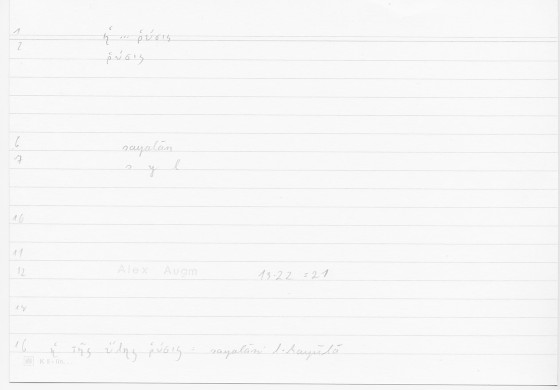 1 ἡ ~ ῥύσις
2 ῥύσις
6 sayalān
7 s y l
10
11
12 Alex Arom 1522 = 21
16 ἡ τῆς ὕλης ῥύσις · sayalān l-hayūlā